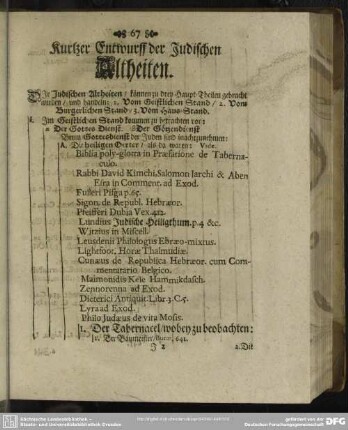 67
Kurtzer Entwurff der Jüdischen
Altheiten.
Die Jüdischen Altheiten / können zu drey Haupt-Theilen gebracht
werden / und handeln: 1. Vom Geistlichen Stand / 2. Vom
Bürgerlichen Stand / 3. Vom Haus-Stand.
Im Geistlichen Stand kommen zu betrachten vor:
Der Gottes Dienst. Der Götzendienst
Beym Gottesdienst der Jüden sind wahrzunehmen:
A. Die heiligen Oerter / als da waren: Vide.
Biblia poly-glotta in Præfatione de Taberna-
culo.
Rabbi David Kimchi, Salomon Jarchi & Aben
Esra in Comment. ad Exod.
Fulleri Pisga p. 65.
Sigon. de Republ. Hebræor.
Pfeifferi Dubia Vex. 412.
Lundius Jüdische Heiligthum. p. 4 &c.
Witzius in Miscell.
Leusdenii Philologus Ebræo-mixtus.
Lightfoot, Horæ Thalmudiæ.
Cunæus de Republica Hebræor. cum Com-
mentatario Belgico.
Maimonidis Kele Hammikdasch.
Zennorenna ad Exod.
Dieterici Antiquit. Libr. 3. C. 5.
Lyra ad Exod.
Philo Judæus de vita Mosis.
1. Der Tabernacel / wobey zu beobachten:
Der Baumeister / 641.
2. Die
Sächsische Landesbibliothek -
Staats- und Universitätsbibliothek Dresden
gefördert von der
Deutschen Forschungsgemeinschaft
DFG